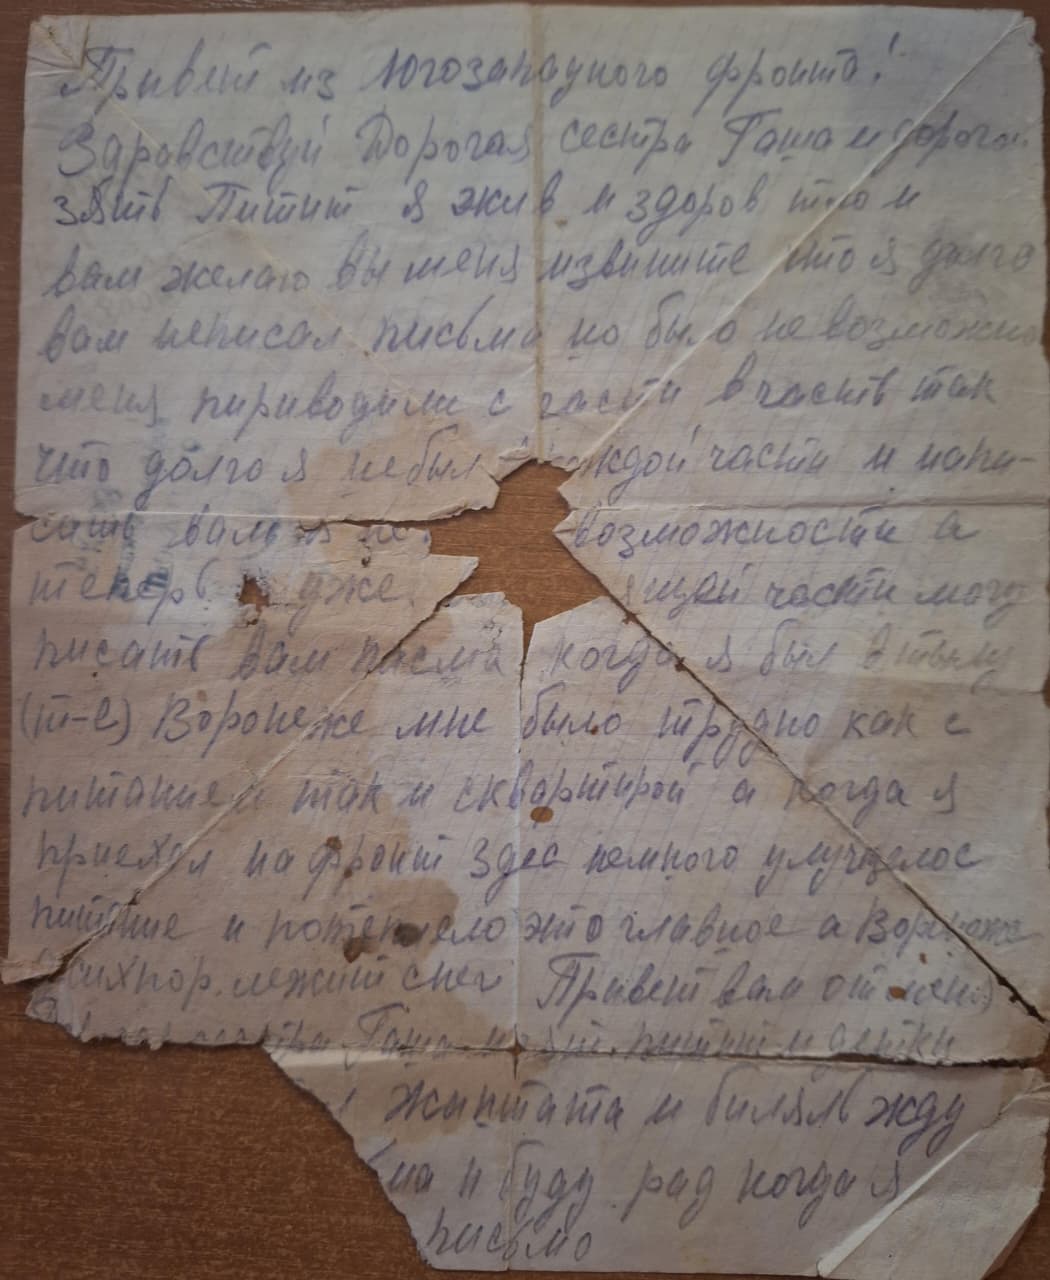 Привет из Югозападного фронта!
Здравствуй Дорогая сестра Гаша и дорогой
зять Питит я жив и здоров того и
вам желаю вы меня извините что я долго
вам неписал письма но было невозможно
меня пириводили с части вчасть так
что долго я небыл каждой части и напи-
сать вам я не возможности а
теперь уже ящей части могу
писать вам писма когда я был втылу
(т-е) Воронеже мне было трудно как с
питанием так и сквартирой а когда я
приехал на фронт здес немного улучшелос
питание и потеплело это главное а Воронеже
сихпор лежит снег Привет вам от меня
сестра Гаша и зят питит и детки
жду
на и буду рад когда я
письмо